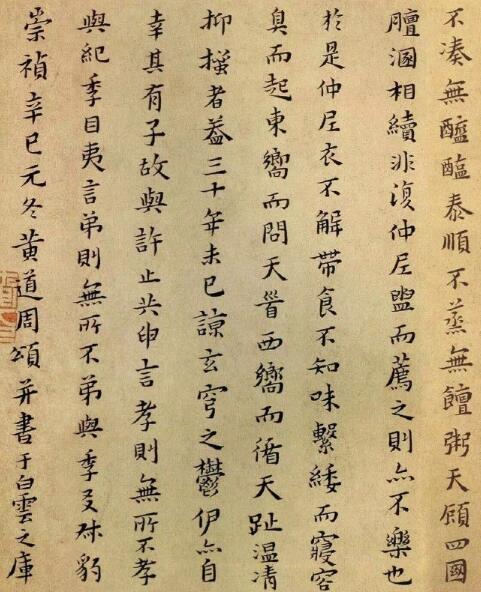 不凑無醯醢泰順不蒸無饘粥天顧四國
膻溷相續非復仲尼盥而薦之則亦不樂也
於是仲尼衣不解帶食不知味繫緌而寢容
臭而起東嚮而問天晉西嚮而循天趾温凊
抑搔者蓋三十年未已諒玄穹之鬱伊亦自
幸其有子故與許止共申言孝則無所不孝
與紀季目夷言弟則無所不弟與季友叔豹
崇禎辛巳元冬黄道周頌并書于白雲之庫